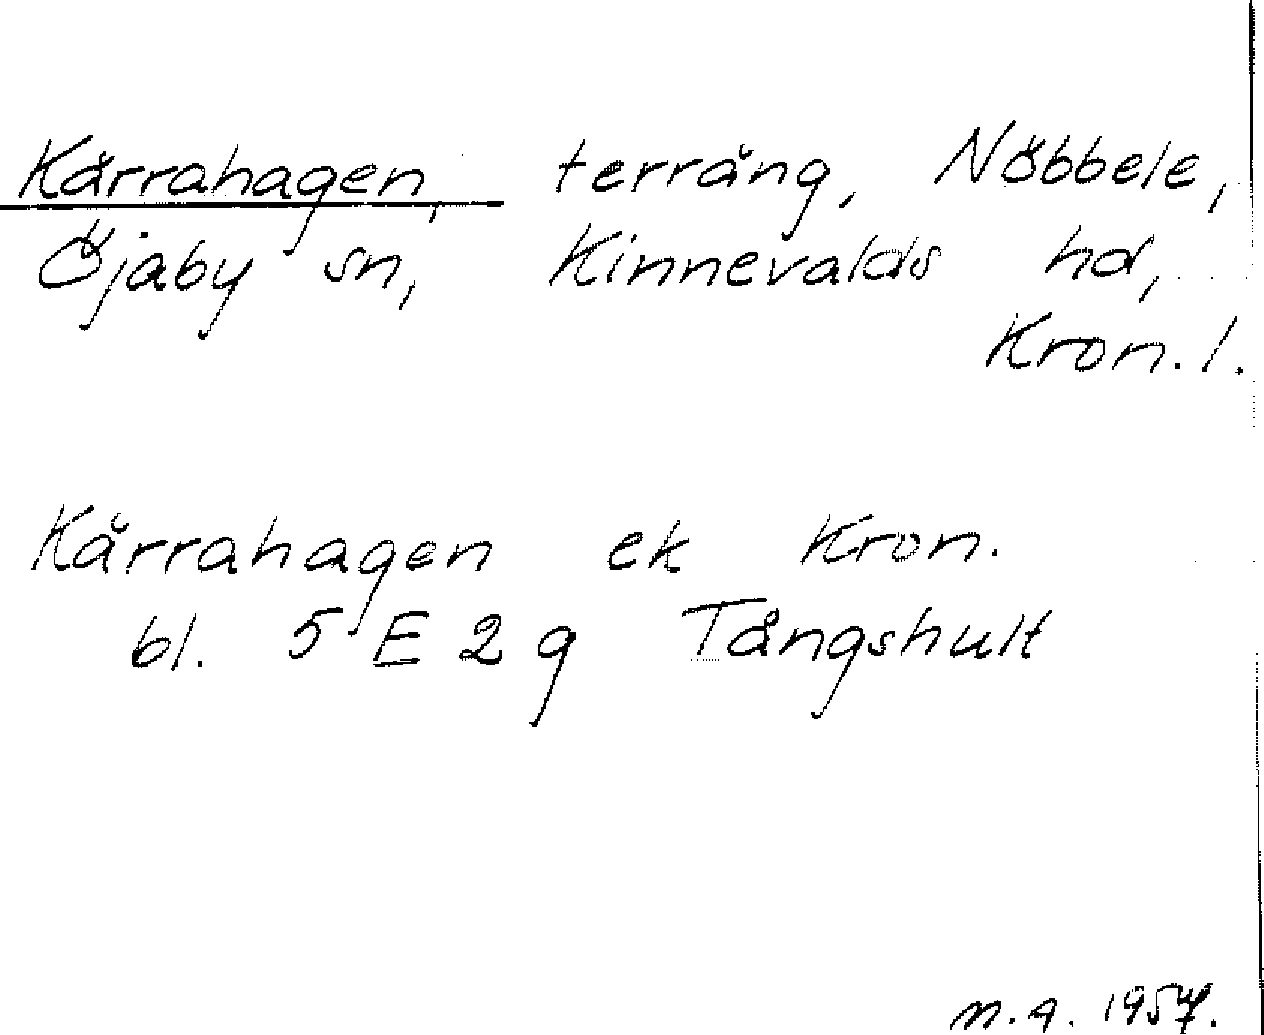 Kärrahagen, terräng, Nöbbele,
Öjaby sn, Kinnevalds hd,
Kron. l.
Kärrahagen ek Kron.
bl. 5 E 2 g Tångshult
m.a. 1957.